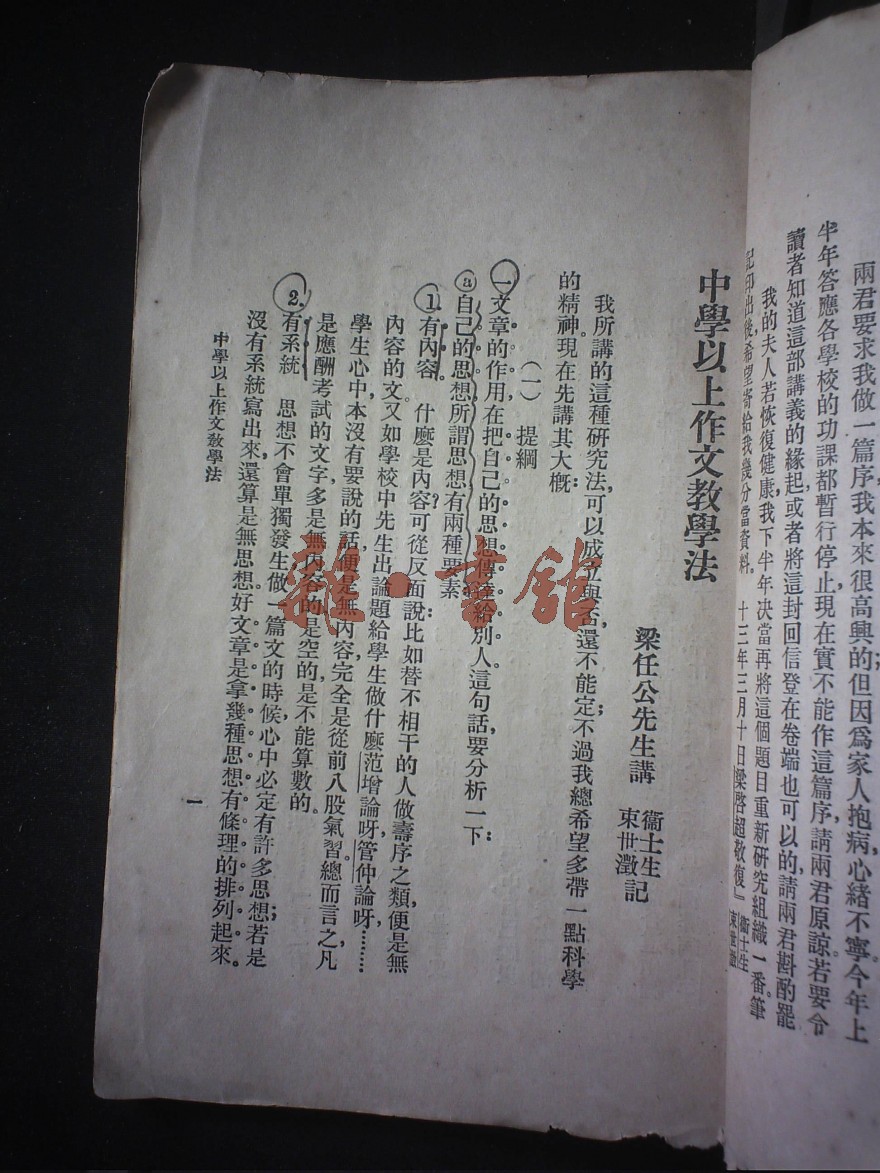 兩君要求我做一篇序,我本來很高興的;但因爲家人抱病,心緒不寧。今年上
半年答應各學校的功課都暫行停止,現在實不能作這篇序,請兩君原諒。若要令
讀者知道這部講義的緣起,或者將這封回信登在卷端也可以的,請兩君斟酌罷
我的夫人若恢復健康,我下半年决當再將這個題目重新研究組織一番。筆
記印出後,希望寄給我幾分當資料。 十三年三月十日梁啓超敬復』
衞士生
束世澂
中學以上作文教學法
梁任公先生講
衞士生
束世澂記
我所講的這種研究法,可以成立與否,還不能定;不過我總希望多帶一點科學
的精神。現在先講其大概:
(一) 提綱
一文章的作用在把自己的思想傳達給別人。這句話要分析一下:
ⓐ自己的思想。所謂思想有兩種要素
1.有內容。 什麽是內容?可從反面說:比如替不相干的人做壽序之類,便是無
內容的文。又如學校中先生出論題給學生做什麽范增論呀,管仲論呀,………
學生心中本沒有要說的話,便是無內容,完全是從前八股氣習。總而言之,凡
是應酬考試的文字,多是無內容的,是空的,是不能算數的。
2.有系統 思想不會單獨發生,做一篇文的時候,心中必定有許多思想;若是
沒有系統寫出來,還算是無思想。好文章是拿幾種思想有條理的排列起來。
中學以上作文敎學法
一
雜·書館